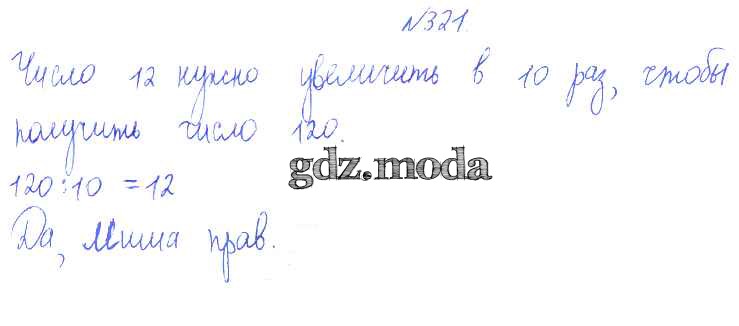 №321.
Число 12 нужно увеличить в 10 раз, чтобы
получить число 120.
gdz.moda
120:10 = 12
Да, Миша прав.